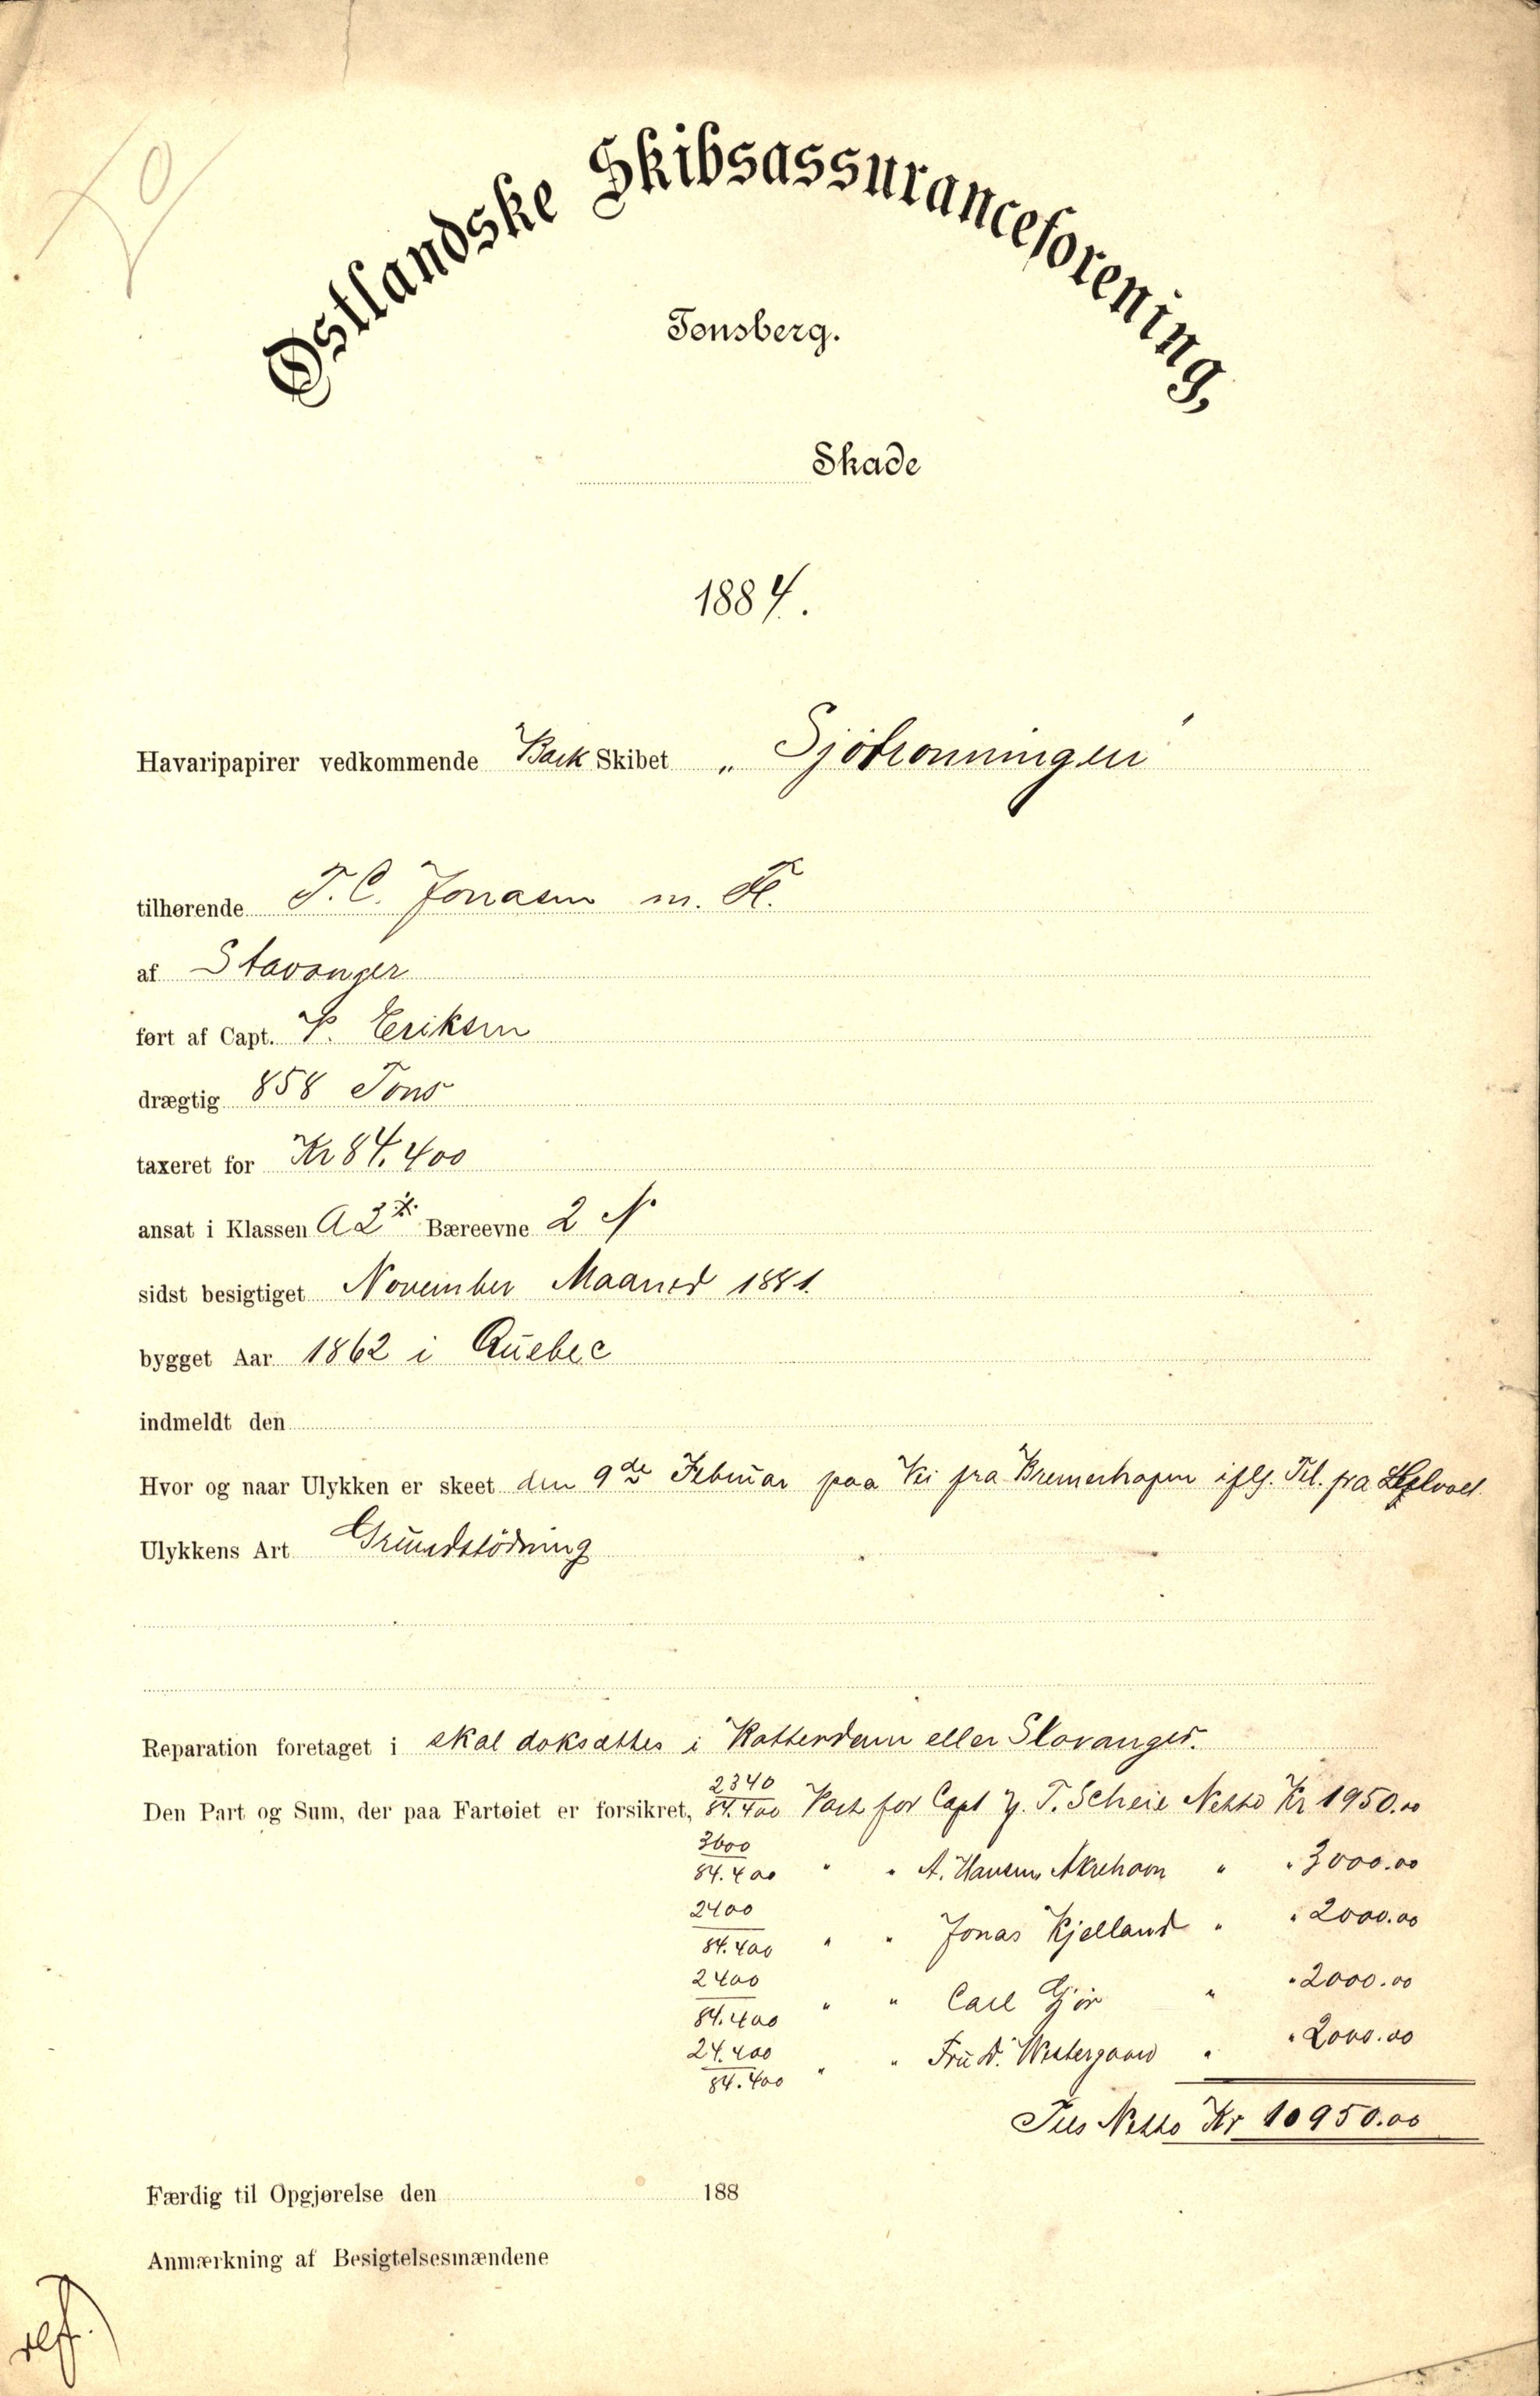 Østlandske Skibsassuranceforening,
Tønsberg.
Skade
1884.
Havaripapirer vedkommende Bark Skibet „Sjödronningen"
tilhørende T. C. Jonasen m. Fl.
af Stavanger
ført af Capt. P. Eriksen
drægtig 858 Tons
taxeret for Kr 84.400
ansat i Klassen A 2 Bæreevne 2 N
sidst besigtiget November Maaned 1881.
bygget Aar 1862 i Quebec
indmeldt den
Hvor og naar Ulykken er skeet den 9de Februar paa Vei fra Bremerhafen iflg. Tel. fra
Ulykkens Art Grundstödning
Reparation foretaget i skal doksættes i Rotterdam eller Stavanger.
Den Part og Sum, der paa Fartøiet er forsikret, 2340/84.400 Part for Capt J. T. Scheie Netto Kr 1950.00
3600/84.400 " " A. Hansen Akrehavn " " 3000.00
2400/84.400 " " Jonas Kjelland " " 2000.00
2400/84.400 " " Carl Gjör " " 2000.00
24.400/84.400 " " Fru D. Westergaard " " 2000.00
Tils Netto Kr 10950.00
Færdig til Opgjørelse den 188
Anmærkning af Besigtelsesmændene